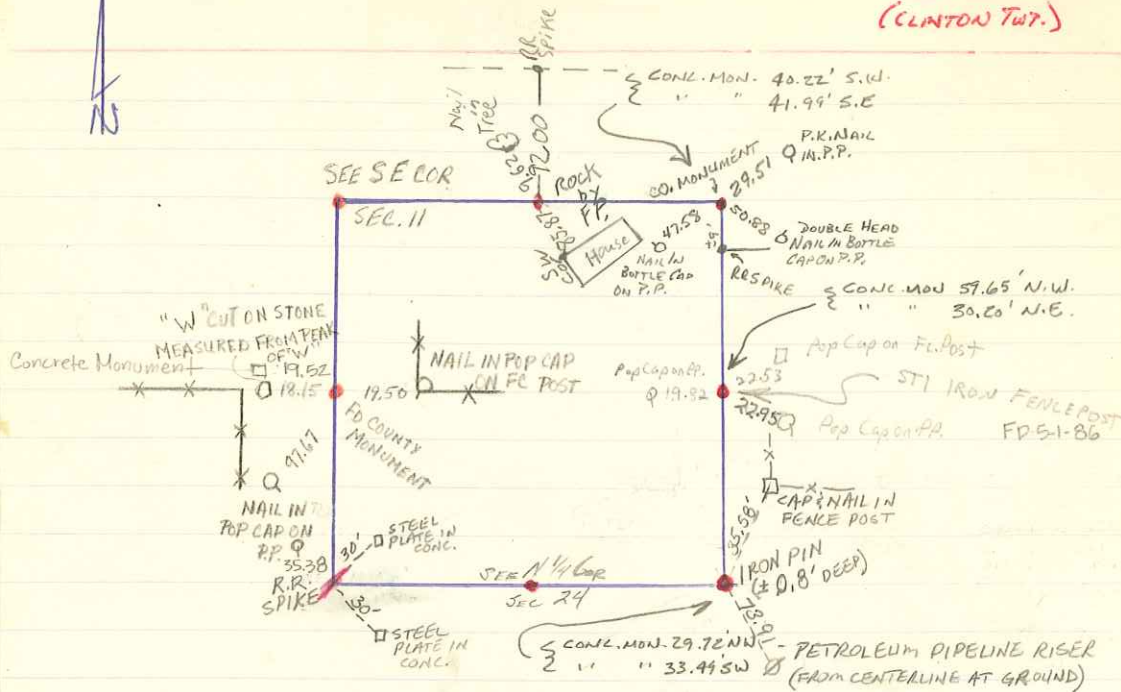 (CLINTON TWP.)
N
RR
SPIKE
Nail
in
Tree
9.62
92.00
CONC. MON. 40.22' S.W.
" " 41.99' S.E
P.K. NAIL
IN P.P.
CO. MONUMENT
29.51
SEE SE COR
SEC. 11
ROCK
by
F.P.
House
SW
Cor
47.58
NAIL IN
BOTTLE CAP
ON P.P.
50.88
DOUBLE HEAD
NAIL IN BOTTLE
CAP ON P.P.
RR SPIKE
CONC. MON 59.65' N.W.
" " 30.20' N.E.
"W" CUT ON STONE
MEASURED FROM PEAK
OF "W"
Concrete Monument
19.52
18.15
19.50
NAIL IN POP CAP
ON FC POST
Pop Cap on PP.
19.82
Pop Cap on Fc. Post
22.53
22.95
Pop Cap on PP.
IRON FENCE POST
FD-5-1-86
FD COUNTY
MONUMENT
97.67
NAIL IN
POP CAP ON
P.P.
35.38
R.R.
SPIKE
30'
STEEL
PLATE IN
CONC.
30-
STEEL
PLATE IN
CONC.
SEE N 1/4 COR
SEC 24
CAP & NAIL IN
FENCE POST
35.58'
IRON PIN
(± 0.8' DEEP)
73.91
CONC. MON. 29.72' NW
" " 33.49' SW
- PETROLEUM PIPELINE RISER
(FROM CENTERLINE AT GROUND)